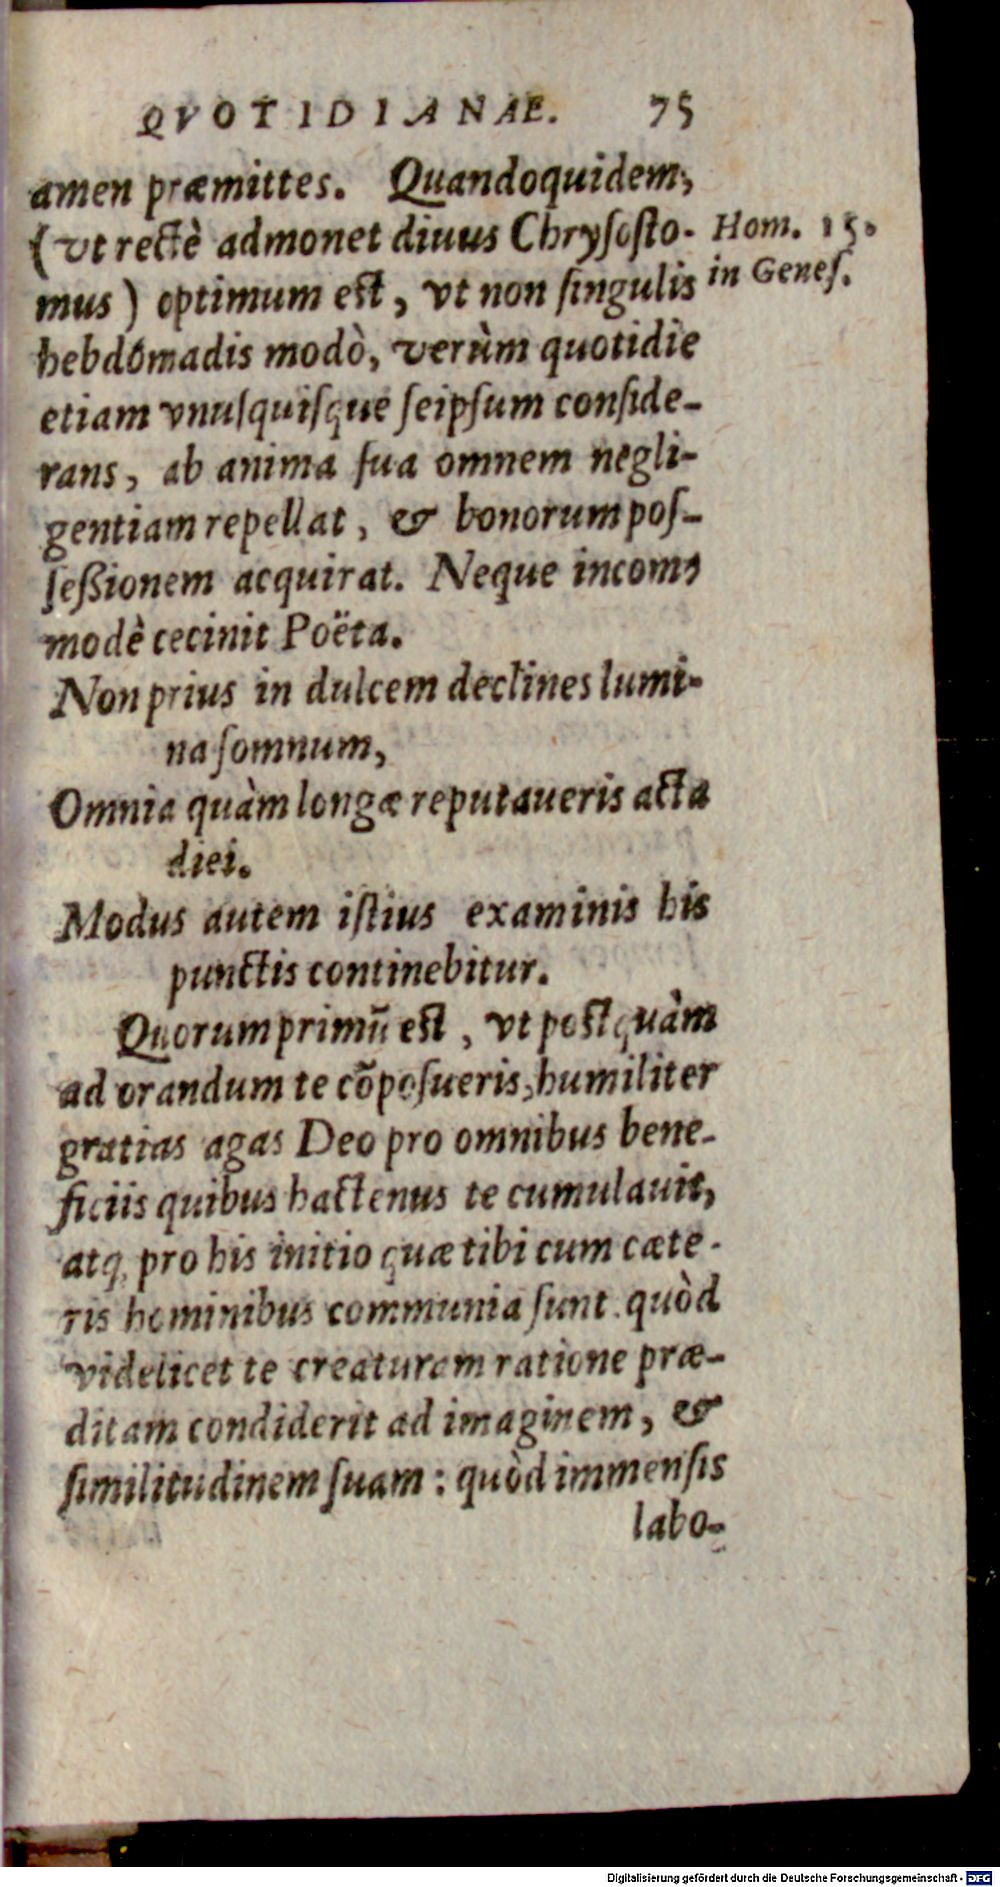 QVOTIDIANAE. 75
amen præmittes. Quandoquidem,
(vt rectè admonet diuus Chrysosto- Hom. 15.
mus) optimum est, vt non singulis in Genes.
hebdomadis modò, verùm quotidie
etiam vnusquisque seipsum conside-
rans, ab anima sua omnem negli-
gentiam repellat, & bonorum pos-
seßionem acquirat. Neque incom-
modè cecinit Poëta.
Non prius in dulcem declines lumi-
na somnum,
Omnia quàm longæ reputaueris acta
diei.
Modus autem istius examinis his
punctis continebitur.
Quorum primũ est, vt postquàm
ad orandum te cõposueris, humiliter
gratias agas Deo pro omnibus bene-
ficiis quibus hactenus te cumulauit,
atq; pro his initio quæ tibi cum cæte-
ris hominibus communia sunt. quòd
videlicet te creaturam ratione præ-
ditam condiderit ad imaginem, &
similitudinem suam: quòd immensis
labo-
Digitalisierung gefördert durch die Deutsche Forschungsgemeinschaft - DFG